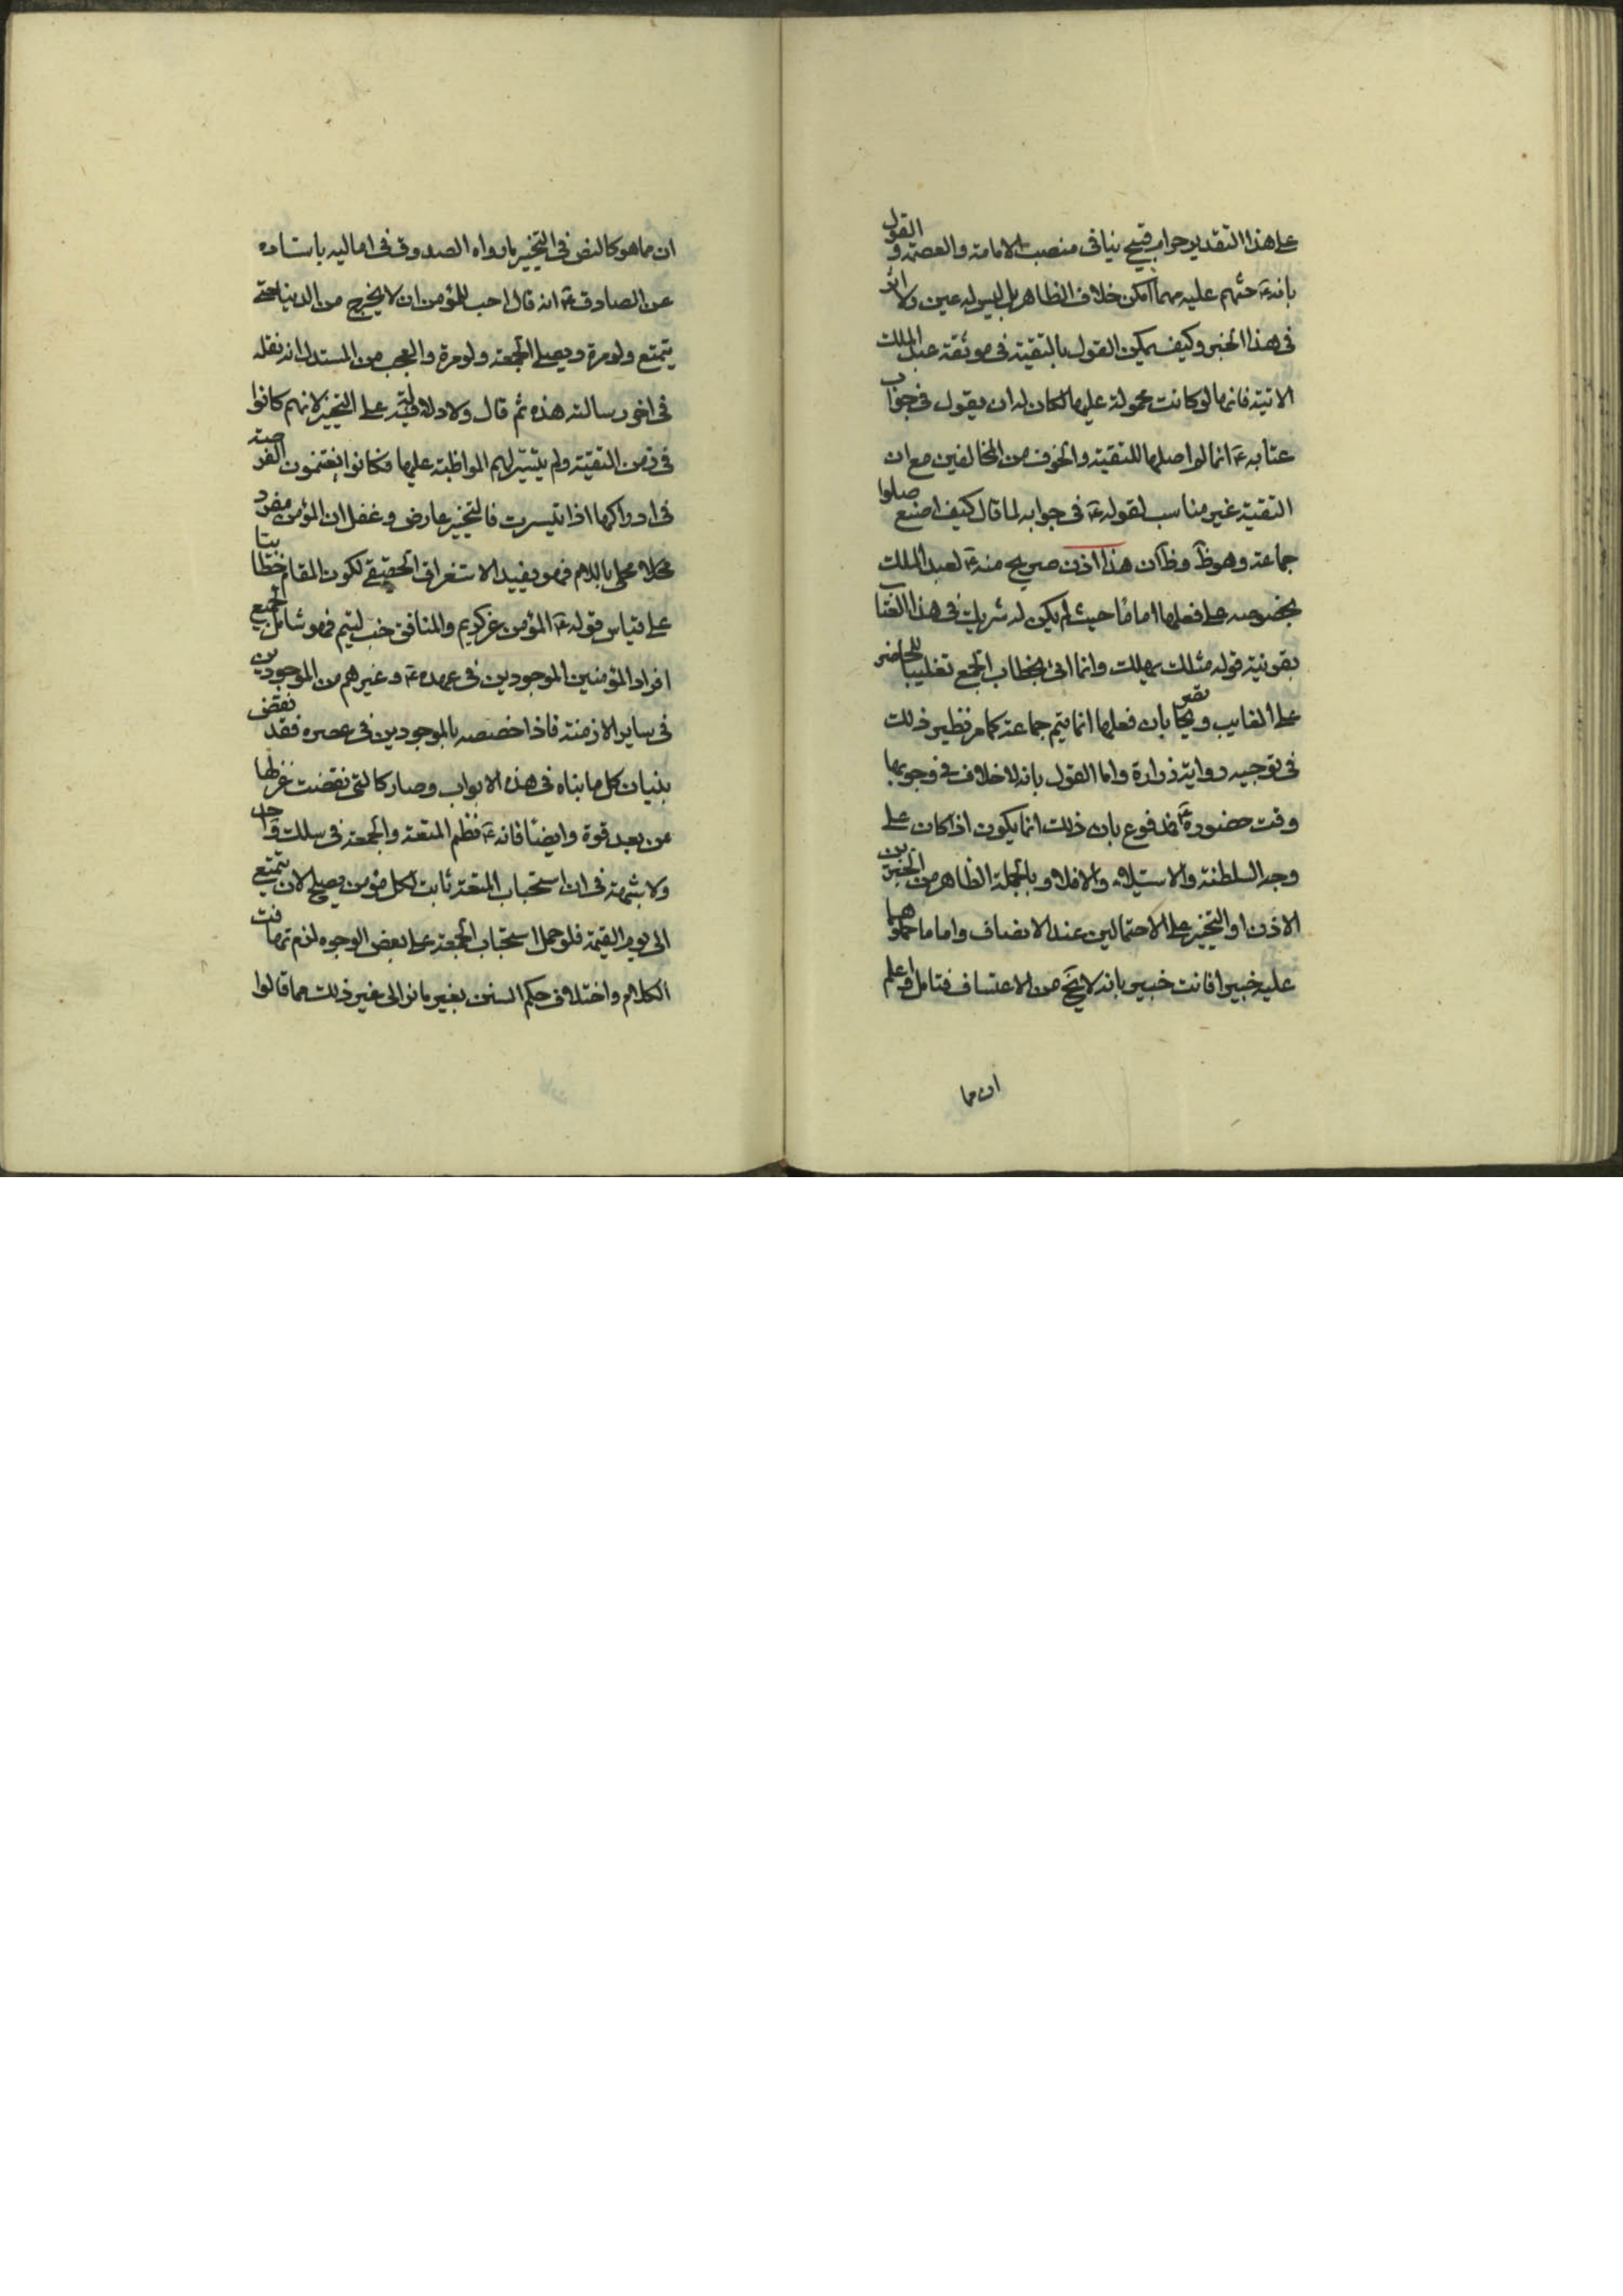 على هذا التقدير حرام قبيح ينافى منصب الامامة والعصمة و القول
بانه ع حثهم عليه مهما امكن خلاف الظاهر بل ليس له عين ولا اثر
فى هذا الخبر وكيف يمكن القول بالتقية فى موثقة عبد الملك
الاتية فانها لو كانت محمولة عليها لكان له ان يقول فى جواب
عتابه ع انما لم اصلها للتقية والخوف من المخالفين مع ان
التقية غير مناسب لقوله ع فى جوابه لما قال كيف اصنع صلوا
جماعة وهو ظ وظ ان هذا اذن صريح منه ع لعبد الملك
بخصوصه على فعلها اماما حيث لم يكن له شريك فى هذا العتاب
بقرينة قوله مثلك يهلك وانما اتى بخطاب الجمع تغليبا للحاضر
على الغايب و يحا بان فعلها انما يتم جماعة كما مر نظير ذلك
فى توجيه رواية زرارة واما القول بانه لا خلاف فى وجوبها
وقت حضوره ع فمدفوع بان ذلك انما يكون اذا كان على
وجه السلطنة والاستيلاء والا فلا و بالجملة الظاهر من الخبرين
الاذن او التخيير على الاحتمالين عند الانصاف واما ما حملوهما
عليه خبيرا فانت خبير بانه لا يخ من الاعتساف فتامل واعلم
ان مما
ان مما هو كالنص فى التخيير ما رواه الصدوق فى اماليه باسناده
عن الصادق ع انه قال احب للمؤمن ان لا يخرج من الدنيا حتى
يتمتع ولو مرة ويصلى الجمعة ولو مرة والعجب من المستدل انه نقله
فى اخر رسالته هذه ثم قال ولا دلالة فيه على التخيير لانهم كانوا
فى زمن التقية ولم يتيسر لهم المواظبة عليها فكانوا يغتنمون الفرصة
فى ادراكها اذا تيسرت فالتخيير عارض وغفل ان المؤمن مفرد
محلى باللام فهو يفيد الاستغراق الحقيقى لكون المقام خطابيا
على قياس قوله ع المؤمن غر كريم والمنافق خب لئيم فهو شامل لجميع
افراد المؤمنين الموجودين فى عهده ع وغيرهم من الموجودين
فى ساير الازمنة فاذا خصصه بالموجودين فى عصره فقد نقض
بنيان كل ما بناه فى هذه الابواب وصار كالتى نقضت غزلها
من بعد قوة وايضا فانه ع نظم المتعة والجمعة فى سلك واحد
ولا شبهة فى ان استحباب المتعة ثابت لكل مؤمن يصلح لان يتمتع
الى يوم القيمة فلو حمل استحباب الجمعة على بعض الوجوه لزم تهافت
الكلام واختلاف حكم السنن بغير مانز الى غير ذلك مما قالوا